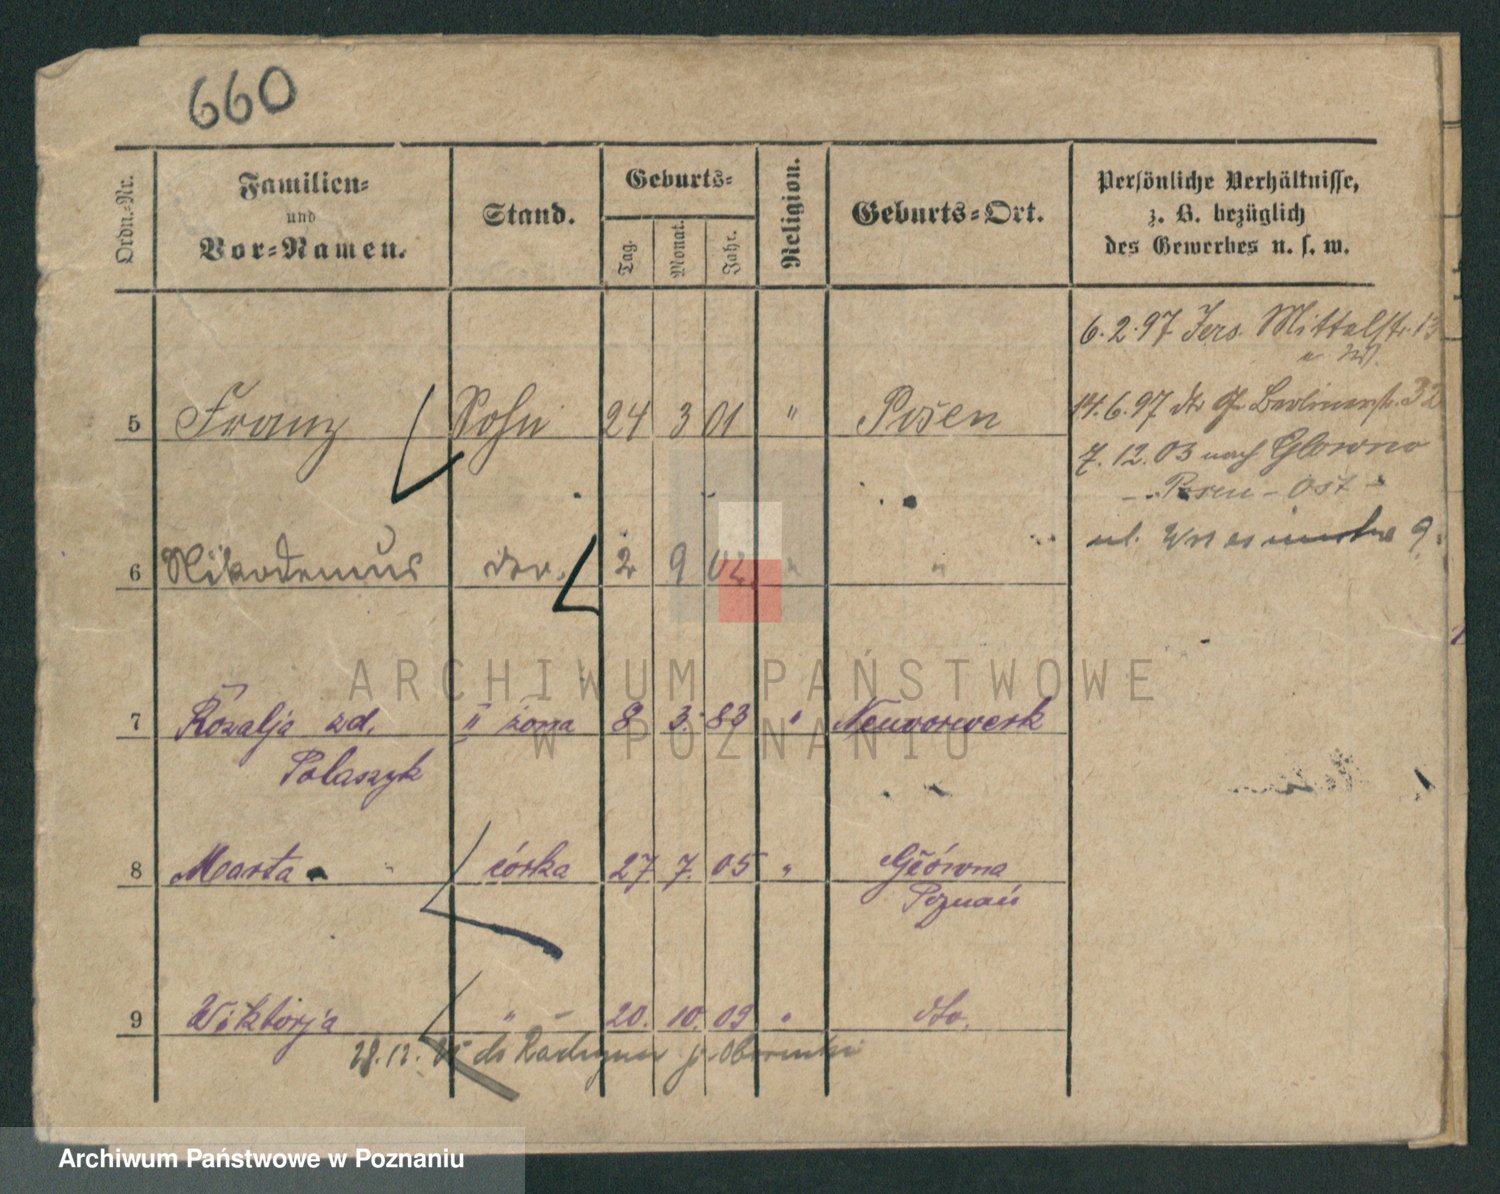 660
Ordn.-Nr.
Familien-
und
Vor-Namen.
Stand.
Geburts-
Tag.
Monat.
Jahr.
Religion.
Geburts-Ort.
Persönliche Verhältnisse,
z. B. bezüglich
des Gewerbes u. s. w.
6.2.97 Jers. Mittelstr. 13
14.6.97 Berlinerstr. 32
5 Franz Sohn 24 3 01 " Posen
7.12.03 nach Glowno
Posen - Ost -
ul. 9.
6 Nikodemus dto. 2 9 02 " "
7 Rozalja zd. II żona 8 3. 83 " Neuvorwerk
Polaszyk
8 Marta córka 27 7. 05 " Główna
Poznań
9 Wiktorja " 20. 10. 09 " dto.
28.12. do
ARCHIWUM PAŃSTWOWE
W POZNANIU
Archiwum Państwowe w Poznaniu